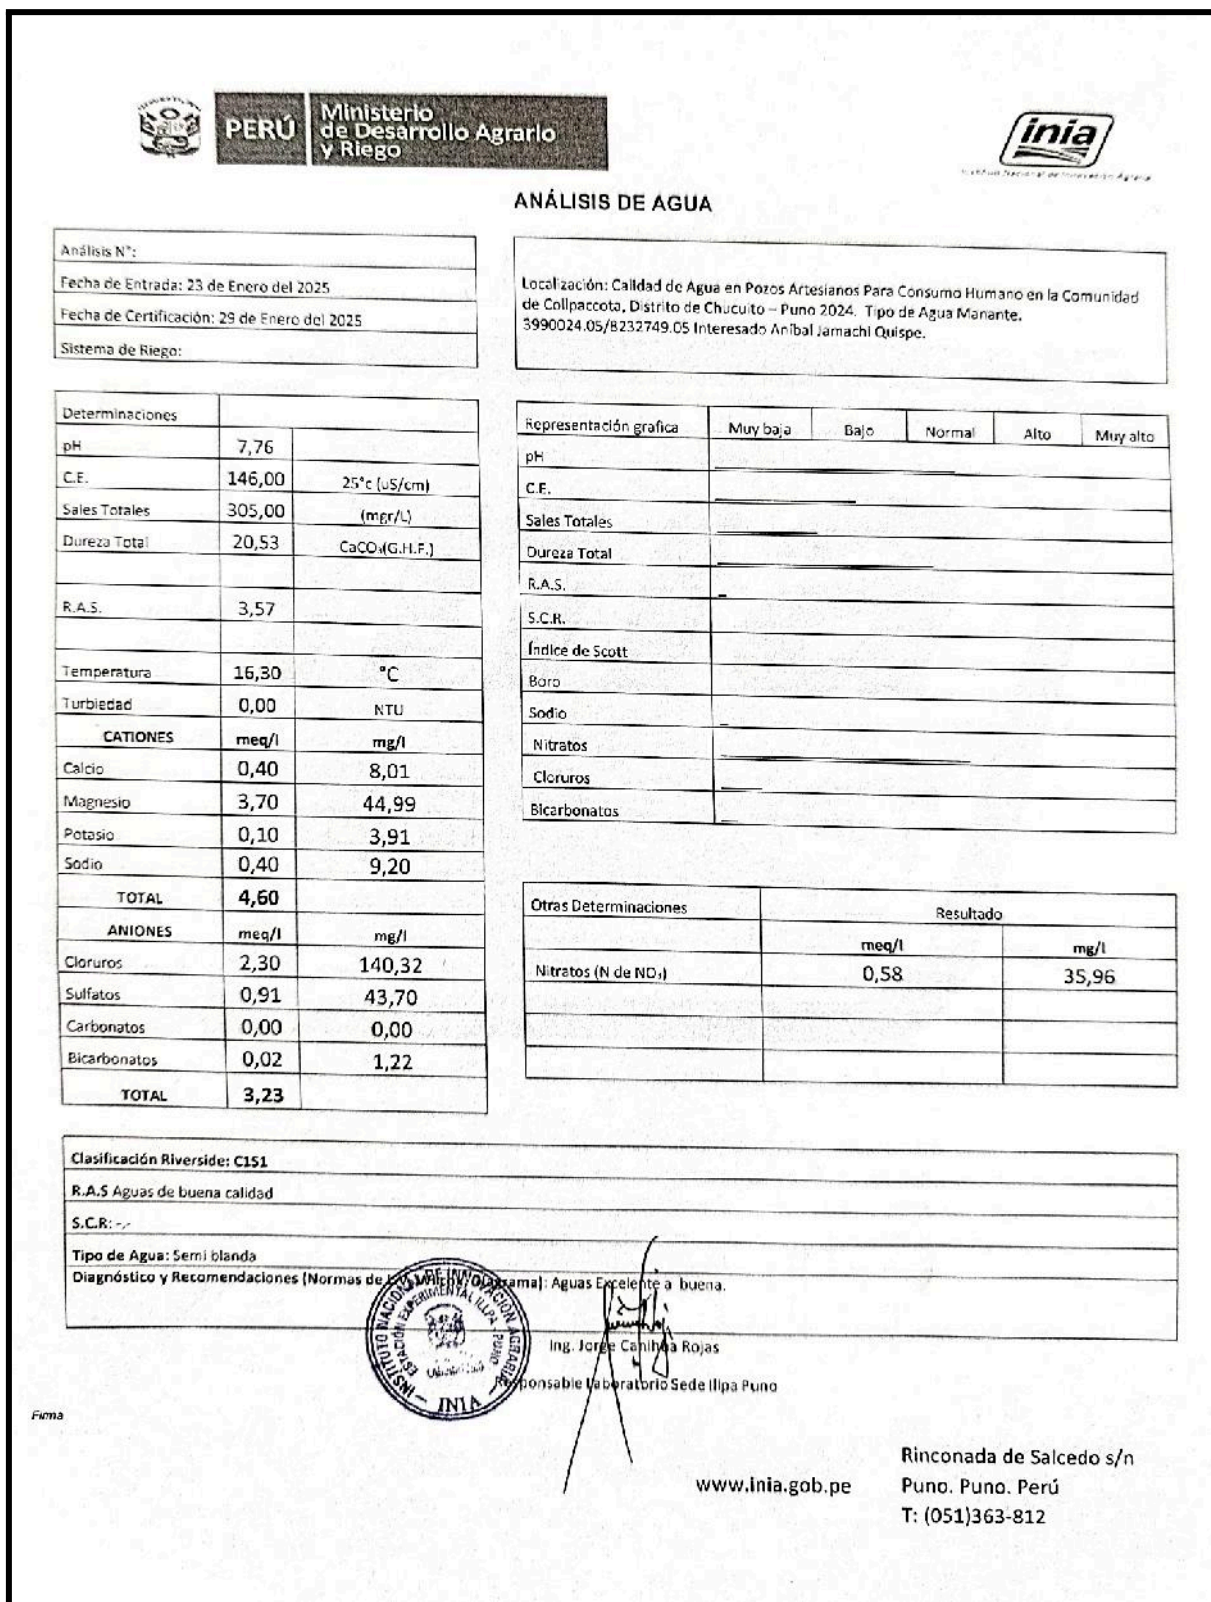 PERÚ
Ministerio
de Desarrollo Agrario
y Riego
inia
Instituto Nacional de Innovación Agraria
ANÁLISIS DE AGUA
Análisis N°:
Fecha de Entrada: 23 de Enero del 2025
Fecha de Certificación: 29 de Enero del 2025
Sistema de Riego:
Localización: Calidad de Agua en Pozos Artesianos Para Consumo Humano en la Comunidad
de Collpaccota, Distrito de Chucuito – Puno 2024. Tipo de Agua Manante.
3990024.05/8232749.05 Interesado Aníbal Jamachi Quispe.
Determinaciones
pH 7,76
C.E. 146,00 25°c (uS/cm)
Sales Totales 305,00 (mgr/L)
Dureza Total 20,53 CaCO₃(G.H.F.)
R.A.S. 3,57
Temperatura 16,30 °C
Turbiedad 0,00 NTU
CATIONES meq/l mg/l
Calcio 0,40 8,01
Magnesio 3,70 44,99
Potasio 0,10 3,91
Sodio 0,40 9,20
TOTAL 4,60
ANIONES meq/l mg/l
Cloruros 2,30 140,32
Sulfatos 0,91 43,70
Carbonatos 0,00 0,00
Bicarbonatos 0,02 1,22
TOTAL 3,23
Representación grafica Muy baja Bajo Normal Alto Muy alto
pH
C.E.
Sales Totales
Dureza Total
R.A.S.
S.C.R.
Índice de Scott
Boro
Sodio
Nitratos
Cloruros
Bicarbonatos
Otras Determinaciones Resultado
meq/l mg/l
Nitratos (N de NO₃) 0,58 35,96
Clasificación Riverside: C1S1
R.A.S Aguas de buena calidad
S.C.R: -.-
Tipo de Agua: Semi blanda
Diagnóstico y Recomendaciones (Normas de Diagrama): Aguas Excelente a buena.
INSTITUTO NACIONAL DE INNOVACIÓN AGRARIA
ESTACIÓN EXPERIMENTAL ILLPA - PUNO
INIA
Ing. Jorge Canihua Rojas
Responsable Laboratorio Sede Illpa Puno
Firma
www.inia.gob.pe
Rinconada de Salcedo s/n
Puno. Puno. Perú
T: (051)363-812